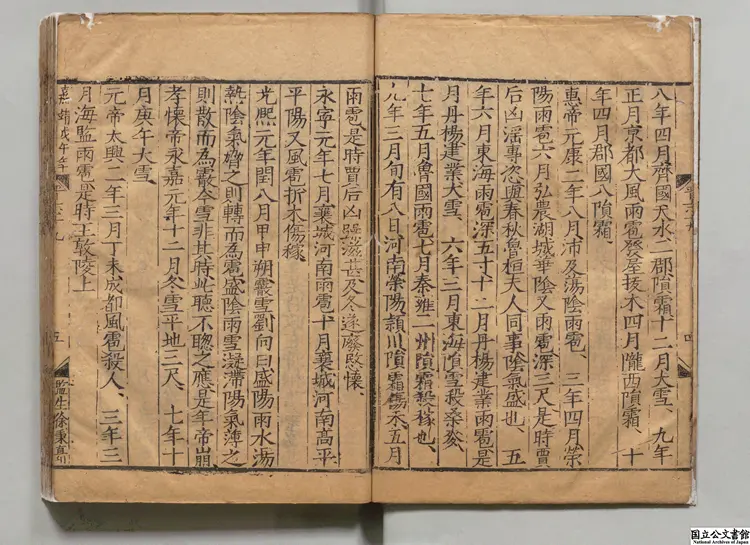 八年四月齊國天水二郡隕霜十二月大雪、 九年
正月京都大風雨雹發屋拔木四月隴西隕霜、 十
年四月郡國八隕霜、
惠帝元康二年八月沛及蕩陰雨雹、 三年四月滎
陽雨雹六月弘農湖城華陰又雨雹深三尺是時賈
后凶淫專恣與春秋魯桓夫人同事陰氣盛也 五
年六月東海雨雹深五寸十二月丹楊建業雨雹是
月丹楊建業大雪、 六年三月東海隕雪殺桑麥
七年五月魯國雨雹七月秦雍二州隕霜殺稼也、
九年三月旬有八日河南滎陽潁川隕霜傷禾五月
四
雨雹是時賈后凶躁滋甚及冬遂廢愍懷、
永寧元年七月襄城河南雨雹十月襄城河南高平
平陽又風雹折木傷稼
光熙元年閏八月甲申朔霰雪劉向曰盛陽雨水湯
熱陰氣脅之則轉而為雹盛陰雨雪凝滯陽氣薄之
則散而為霰今雪非其時此聽不聰之應是年帝崩
孝懷帝永嘉元年十二月冬雪平地三尺、 七年十
月庚午大雪、
元帝太興二年三月丁未成都風雹殺人、 三年三
月海鹽雨雹是時王敦陵上
嘉靖戊午年 五 監生徐秉
国立公文書館
National Archives of Japan